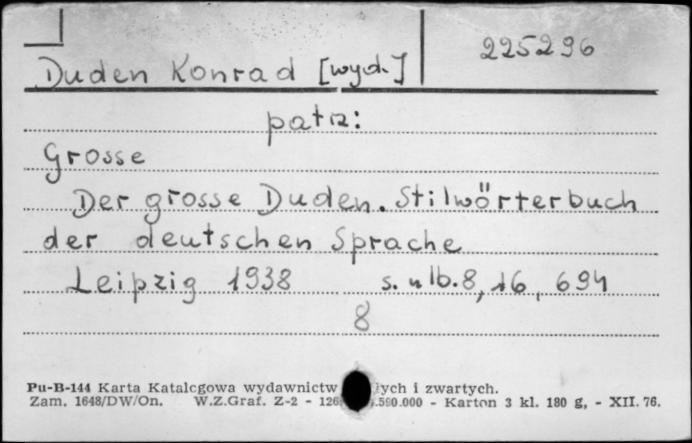 225296
Duden Konrad [wyd.]
patrz:
Grosse
Der grosse Duden. Stilwörterbuch
der deutschen Sprache
Leipzig 1938 s. nlb. 8, 16, 694
8
Pu-B-144 Karta Katalogowa wydawnictw łych i zwartych.
Zam. 1648/DW/On. W.Z.Graf. Z-2 - 126 .590.000 - Karton 3 kl. 180 g, - XII. 76.